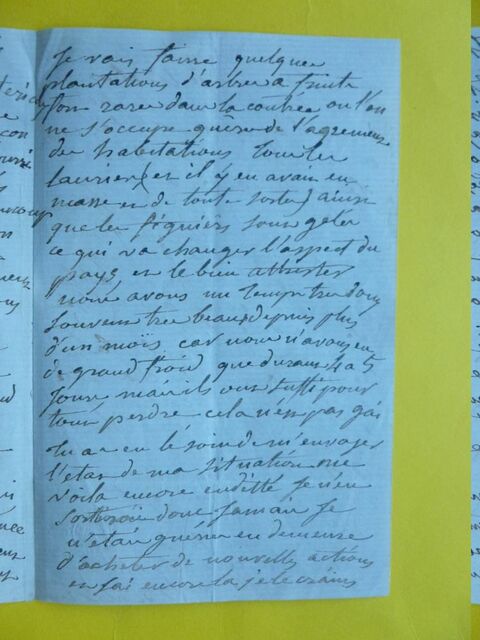 Je vais faire quelques
plantations d'arbres a fruits
fort rares dans la contrée ou l'on
ne s'occupe guère de l'agrement
des habitations tous les
lauriers (et il y en avait en
masse et de toute sorte) ainsi
que les figuiers sont gelés
ce qui va changer l'aspect du
pays et le bien attrister
nous avons un temps tres doux
souvent tres beau depuis plus
d'un mois, car nous n'avons eu
de grand froid que durant 4 a 5
jours mais ils ont suffi pour
tout perdre cela n'est pas gai
tu as eu le soin de m'envoyer
l'etat de ma situation me
voila encore endetté je n'en
sortirai donc jamais je
n'étais guère en demeure
d'acheter de nouvelles actions
en fai encore la je le crains